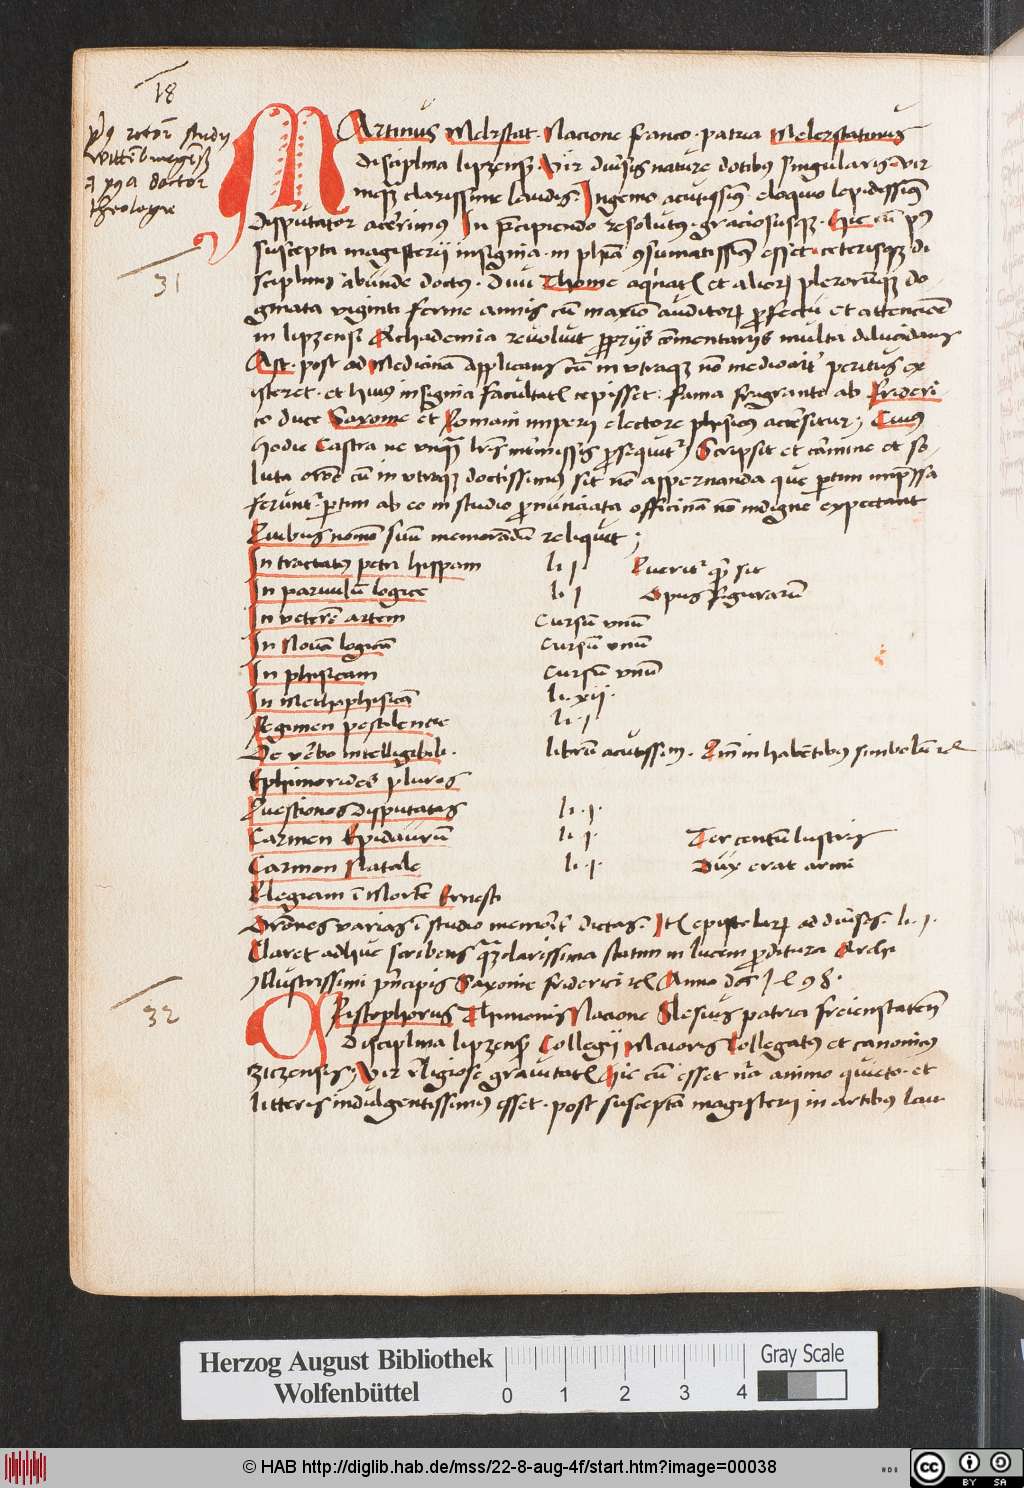 18
rector studij
wittenburgensis
doctor
theologie
31
MArtinus Melrstat. Nacione franco. patria Melerstatinus
Disciplina lipzens. Vir diuersis nature dotibus singularis vir
clarissime laudis. Ingenio acutissimus eloquio lepidissimus
Disputator acerrimus In precipiendo resolutus. graciosusque. Hic cum post
suscepta magisterii insignia in phia consumatissimus esset ceterisque di
sciplinis abunde doctus. Diui Thome aquinatis et aliorum plerorumque do
gmata viginti ferme annis cum maximo auditorum profectu et attencione
in lipzensi Achademia reuoluit proprijs commentarijs multa dilucidans
Ast. post ad Medicinam applicans cum in utraque non mediocriter peritus ex
isteret. et huius insignia facultatis cepisset. fama fragrante ab Frideri
co duce Saxonie et Romani imperij electore phisicus accersitur; Cuius
hodie Castra ne unquam literis intermissis prosequitur Scripsit et carmine et so-
luta oratione cum in utraque doctissimus sit non aspernanda que partim impressa
ferunt. partim ab eo in studio pronunciata officinam non indigne expectant
Quibus nomen suum memorandum reliquit;
In tractatus petri hispani li j Queritur quare sit
In paruulum logice li j Opus figurarum
In veterem artem Cursum unum
In Nouam logicam Cursum unum
In phisicam Cursum unum
In Methaphisicam li. xij.
Regimen pestilencie li. j
De verbo intelligibili. librum acutissimum. Quoniam in habentibus simbolum etc
Ephimerides plures
Questiones disputatas li. j.
Carmen Epidaurum li. j. Ter centum lustris
Carmen Natale li. j. Dux erat armi
Elegiam in Mortem Ernesti
Orationes varias in studio memoriter dictas. Item epistolarum ad diuersos. li. j.
Claret adhuc scribens quam clarissima statim in lucem proditura Archi
Illustrissimi principis Saxonie friderici etc Anno dni 1498.
32
CRistophorus Thimonis Nacione Slesius patria freienstatensis
Disciplina lipzensis Collegij Maioris Collegatus et canonicus
ziczensis; Vir religiose grauitatis Hic cum esset animo quieto. et
litteris indulgentissimus esset. post susceptam magisterij in artibus lau
Herzog August Bibliothek
Wolfenbüttel
0 1 2 3 4
Gray Scale
© HAB http://diglib.hab.de/mss/22-8-aug-4f/start.htm?image=00038
HAB
cc BY SA